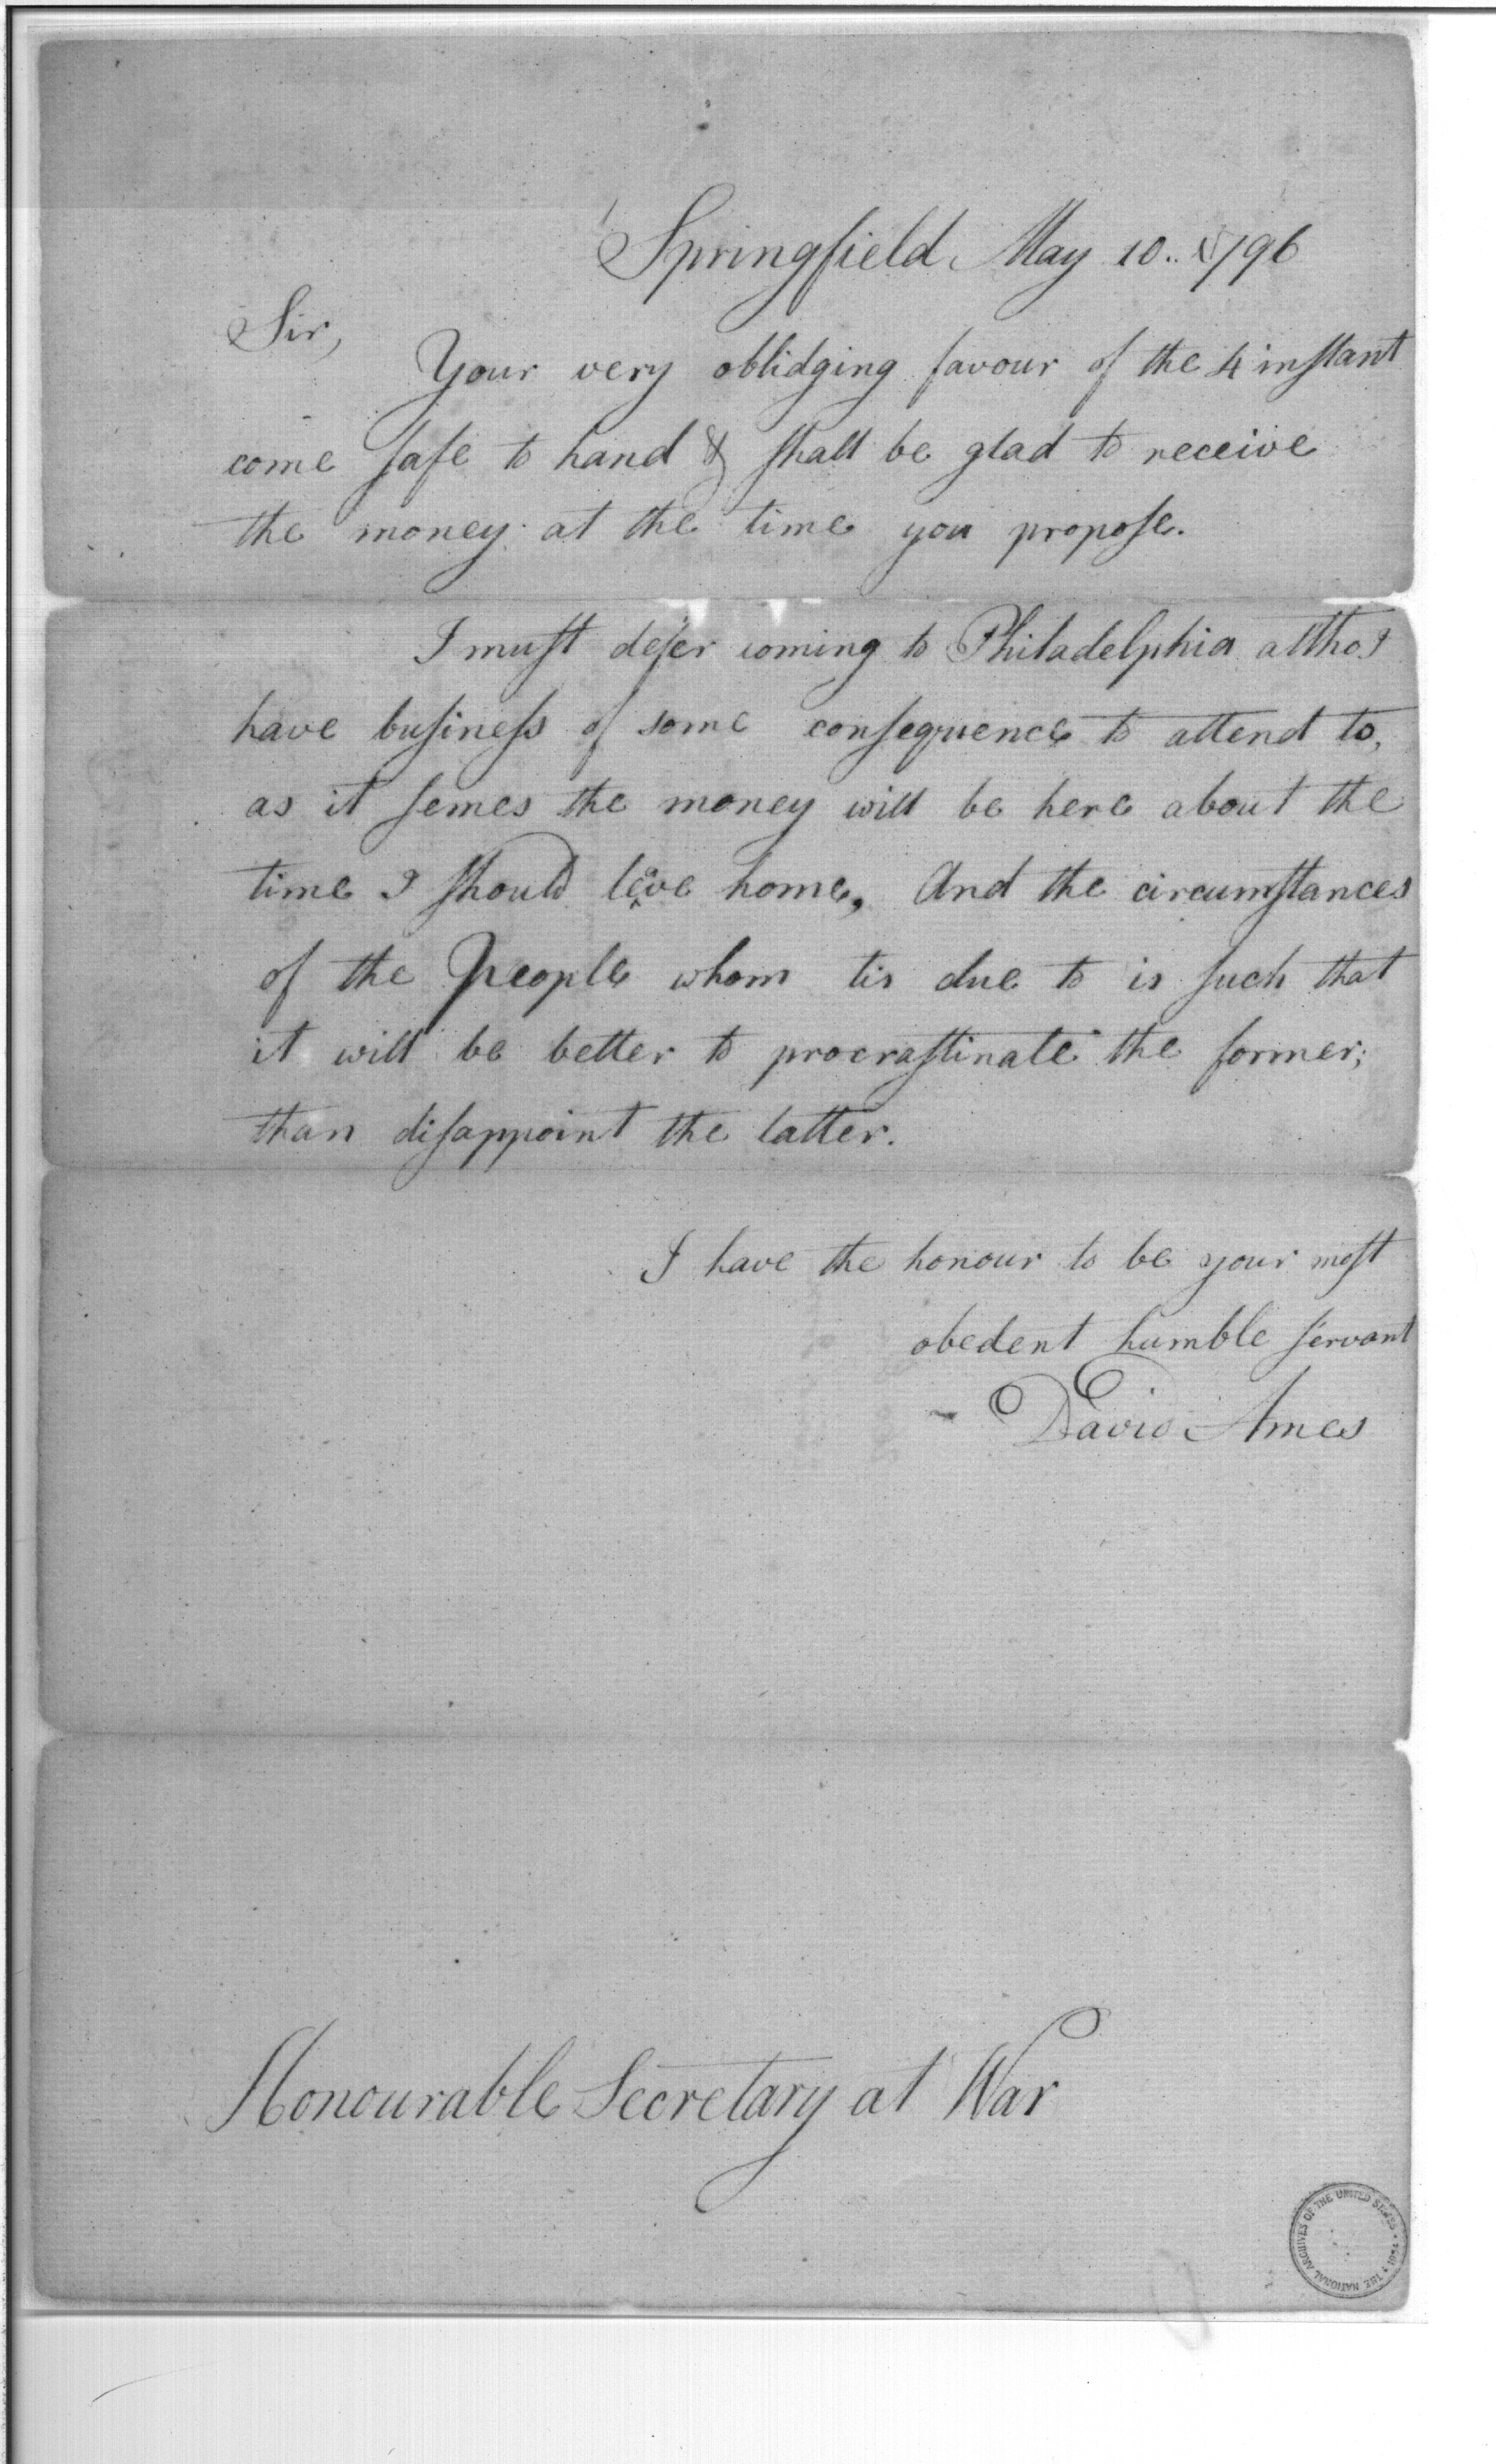 Springfield May 10.. 1796
Sir,
Your very oblidging favour of the 4 instant
come safe to hand & shall be glad to receive
the money at the time you propose.
I must defer coming to Philadelphia altho I
have business of some consequence to attend to,
as it semes the money will be here about the
time I should leave home, And the circumstances
of the People whom tis due to is such that
it will be better to procrastinate the former;
than disappoint the latter.
I have the honour to be your most
obedent humble servant
David Ames
Honourable Secretary at War
THE NATIONAL ARCHIVES OF THE UNITED STATES • 1934 •